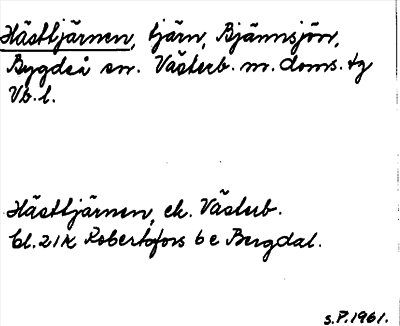 Hästtjärnen, tjärn, Bjännsjön,
Bygdeå sn. Västerb. m. doms. tg
Vb. l.
Hästtjärnen, ek. Västerb.
bl. 21K Robertsfors 6 e Bergdal.
s.P.1961.